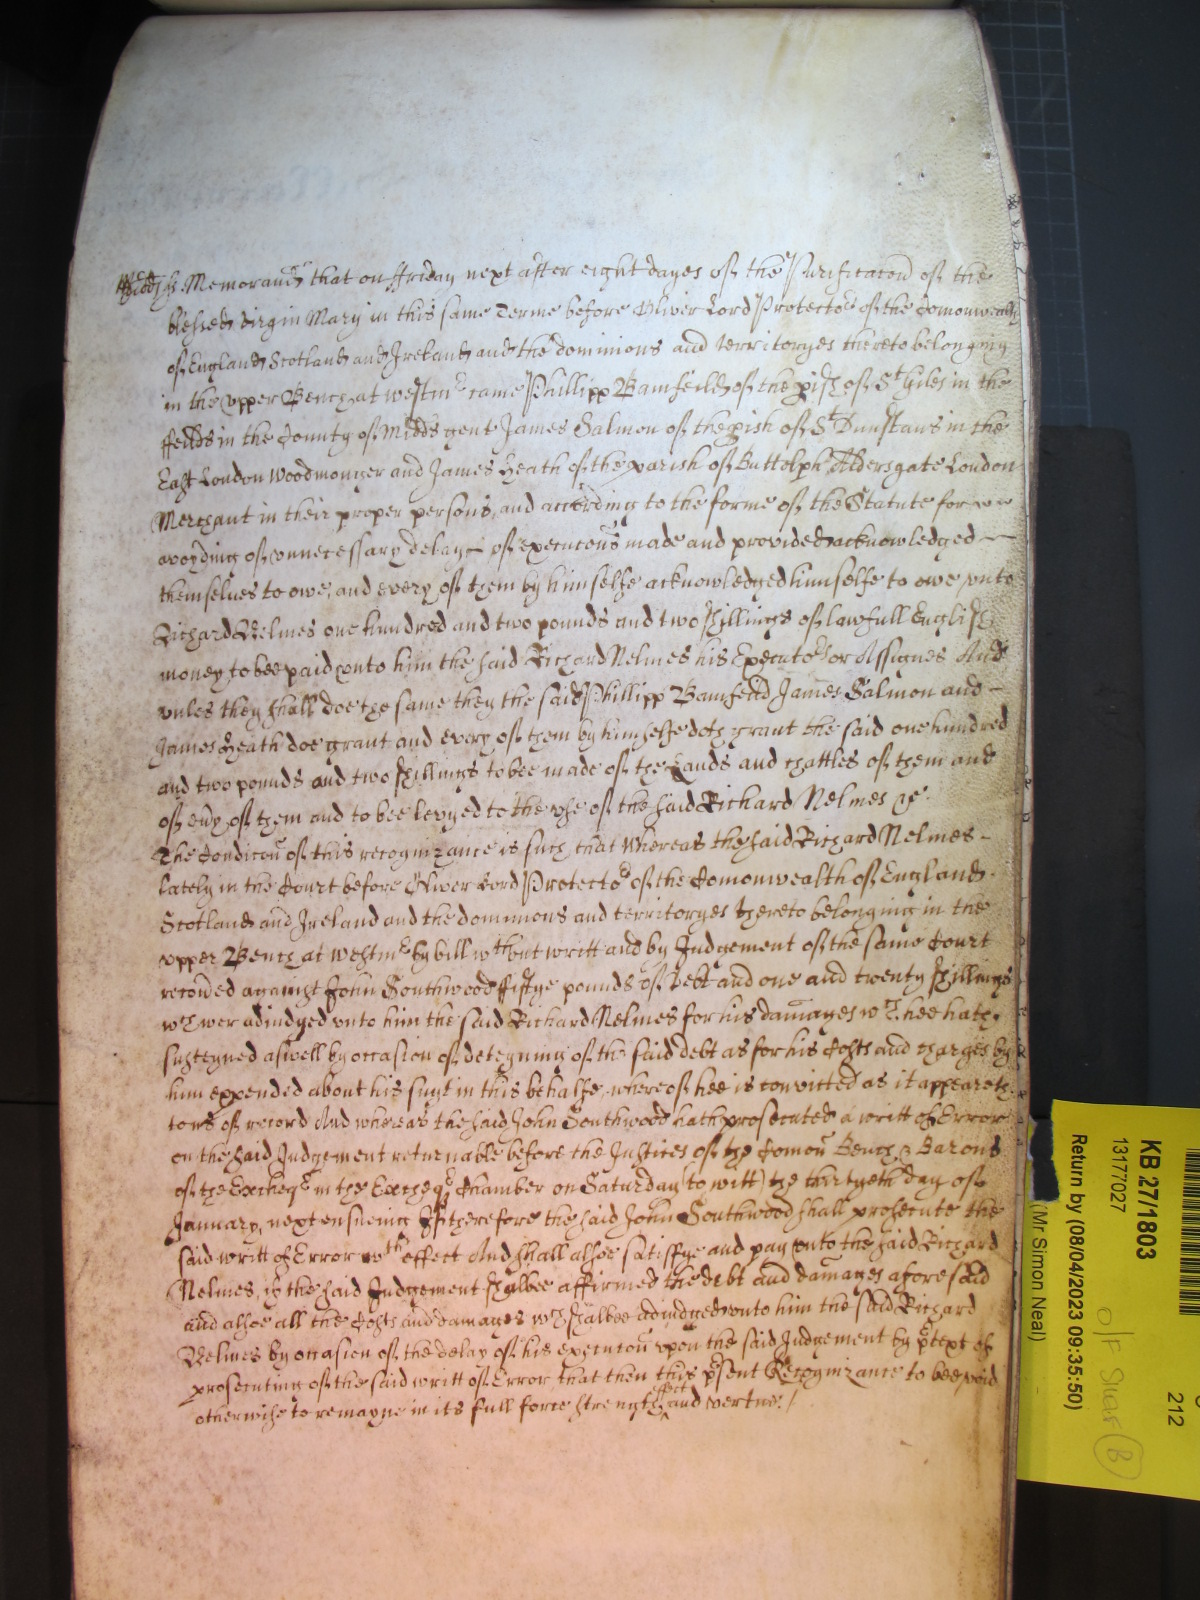 Midds ss. Memorand that on ffriday next after eight dayes of the Purificacon of the
blessed virgin Mary in this same Terme before Oliver Lord Protector of the Comonwealth
of England Scotland and Ireland and the dominions and territoryes thereto belonging
in the vpper Bench at westmr came Phillipp Bamfeild of the pish of St Giles in the
ffeilds in the County of Midds gent James Salmon of the pish of St Dunstans in the
East London Woodmonger and James Heath of the parish of Buttolph Aldersgate London
Merchant in their proper persons, and according to the forme of the Statute for
avoyding of vnnecessary delayes of execucons made and provided acknowledged
themselves to owe, and every of them by himselfe acknowledged himselfe to owe vnto
Richard Nelmes one hundred and two pounds and two shillings of lawfull English
money to bee paid vnto him the said Richard Nelmes his Executors or Assignes And
vnles they shall doe the same they the said Phillipp Bamfeild James Salmon and
James Heath doe grant and every of them by himselfe doth grant the said one hundred
and two pounds and two shillings to bee made of the Lands and chattles of them and
of evry of them and to bee levyed to the vse of the said Richard Nelmes &c.
The Condicon of this recognizance is such that Whereas the said Richard Nelmes
lately in the Court before Oliver Lord Protector of the Comonwealth of England
Scotland and Ireland and the dominions and territoryes thereto belonging in the
vpper Bench at westmr by bill wthout writt and by Judgement of the same Court
recoved against John Southwood fiftye pounds of debt and one and twenty shillings
wch wer adiudged vnto him the said Richard Nelmes for his damages wch hee hath
susteyned aswell by occasion of deteyning of the said debt as for his Costs and charges by
him expended about his suyt in this behalfe, whereof hee is convicted as it appeareth
to vs of record And whereas the said John Southwood hath prosecuted a writt of Error
on the said Judgement returnable before the Justices of the Comon Bench & Barons
of the Excheqr in the Excheqr Chamber on Saturday (to witt) the thirtyeth day of
January, next ensueing If therefore the said John Southwood shall prosecute the
said writt of Error wth effect And shall alsoe satisfye and pay vnto the said Richard
Nelmes, if the said Judgement shalbee affirmed the debt and damages aforesaid
and alsoe all the Costs and damages wch shalbee adiudged vnto him the said Richard
Nelmes by occasion of the delay of his execucon vpon the said Judgement by ptext of
prosecuting of the said writt of Error, that then this psent Recognizance to bee void
otherwise to remayne in its full force strength effect and vertue./
KB 27/1803
13177027
Return by (08/04/2023 09:35:50)
(Mr Simon Neal)
212
B